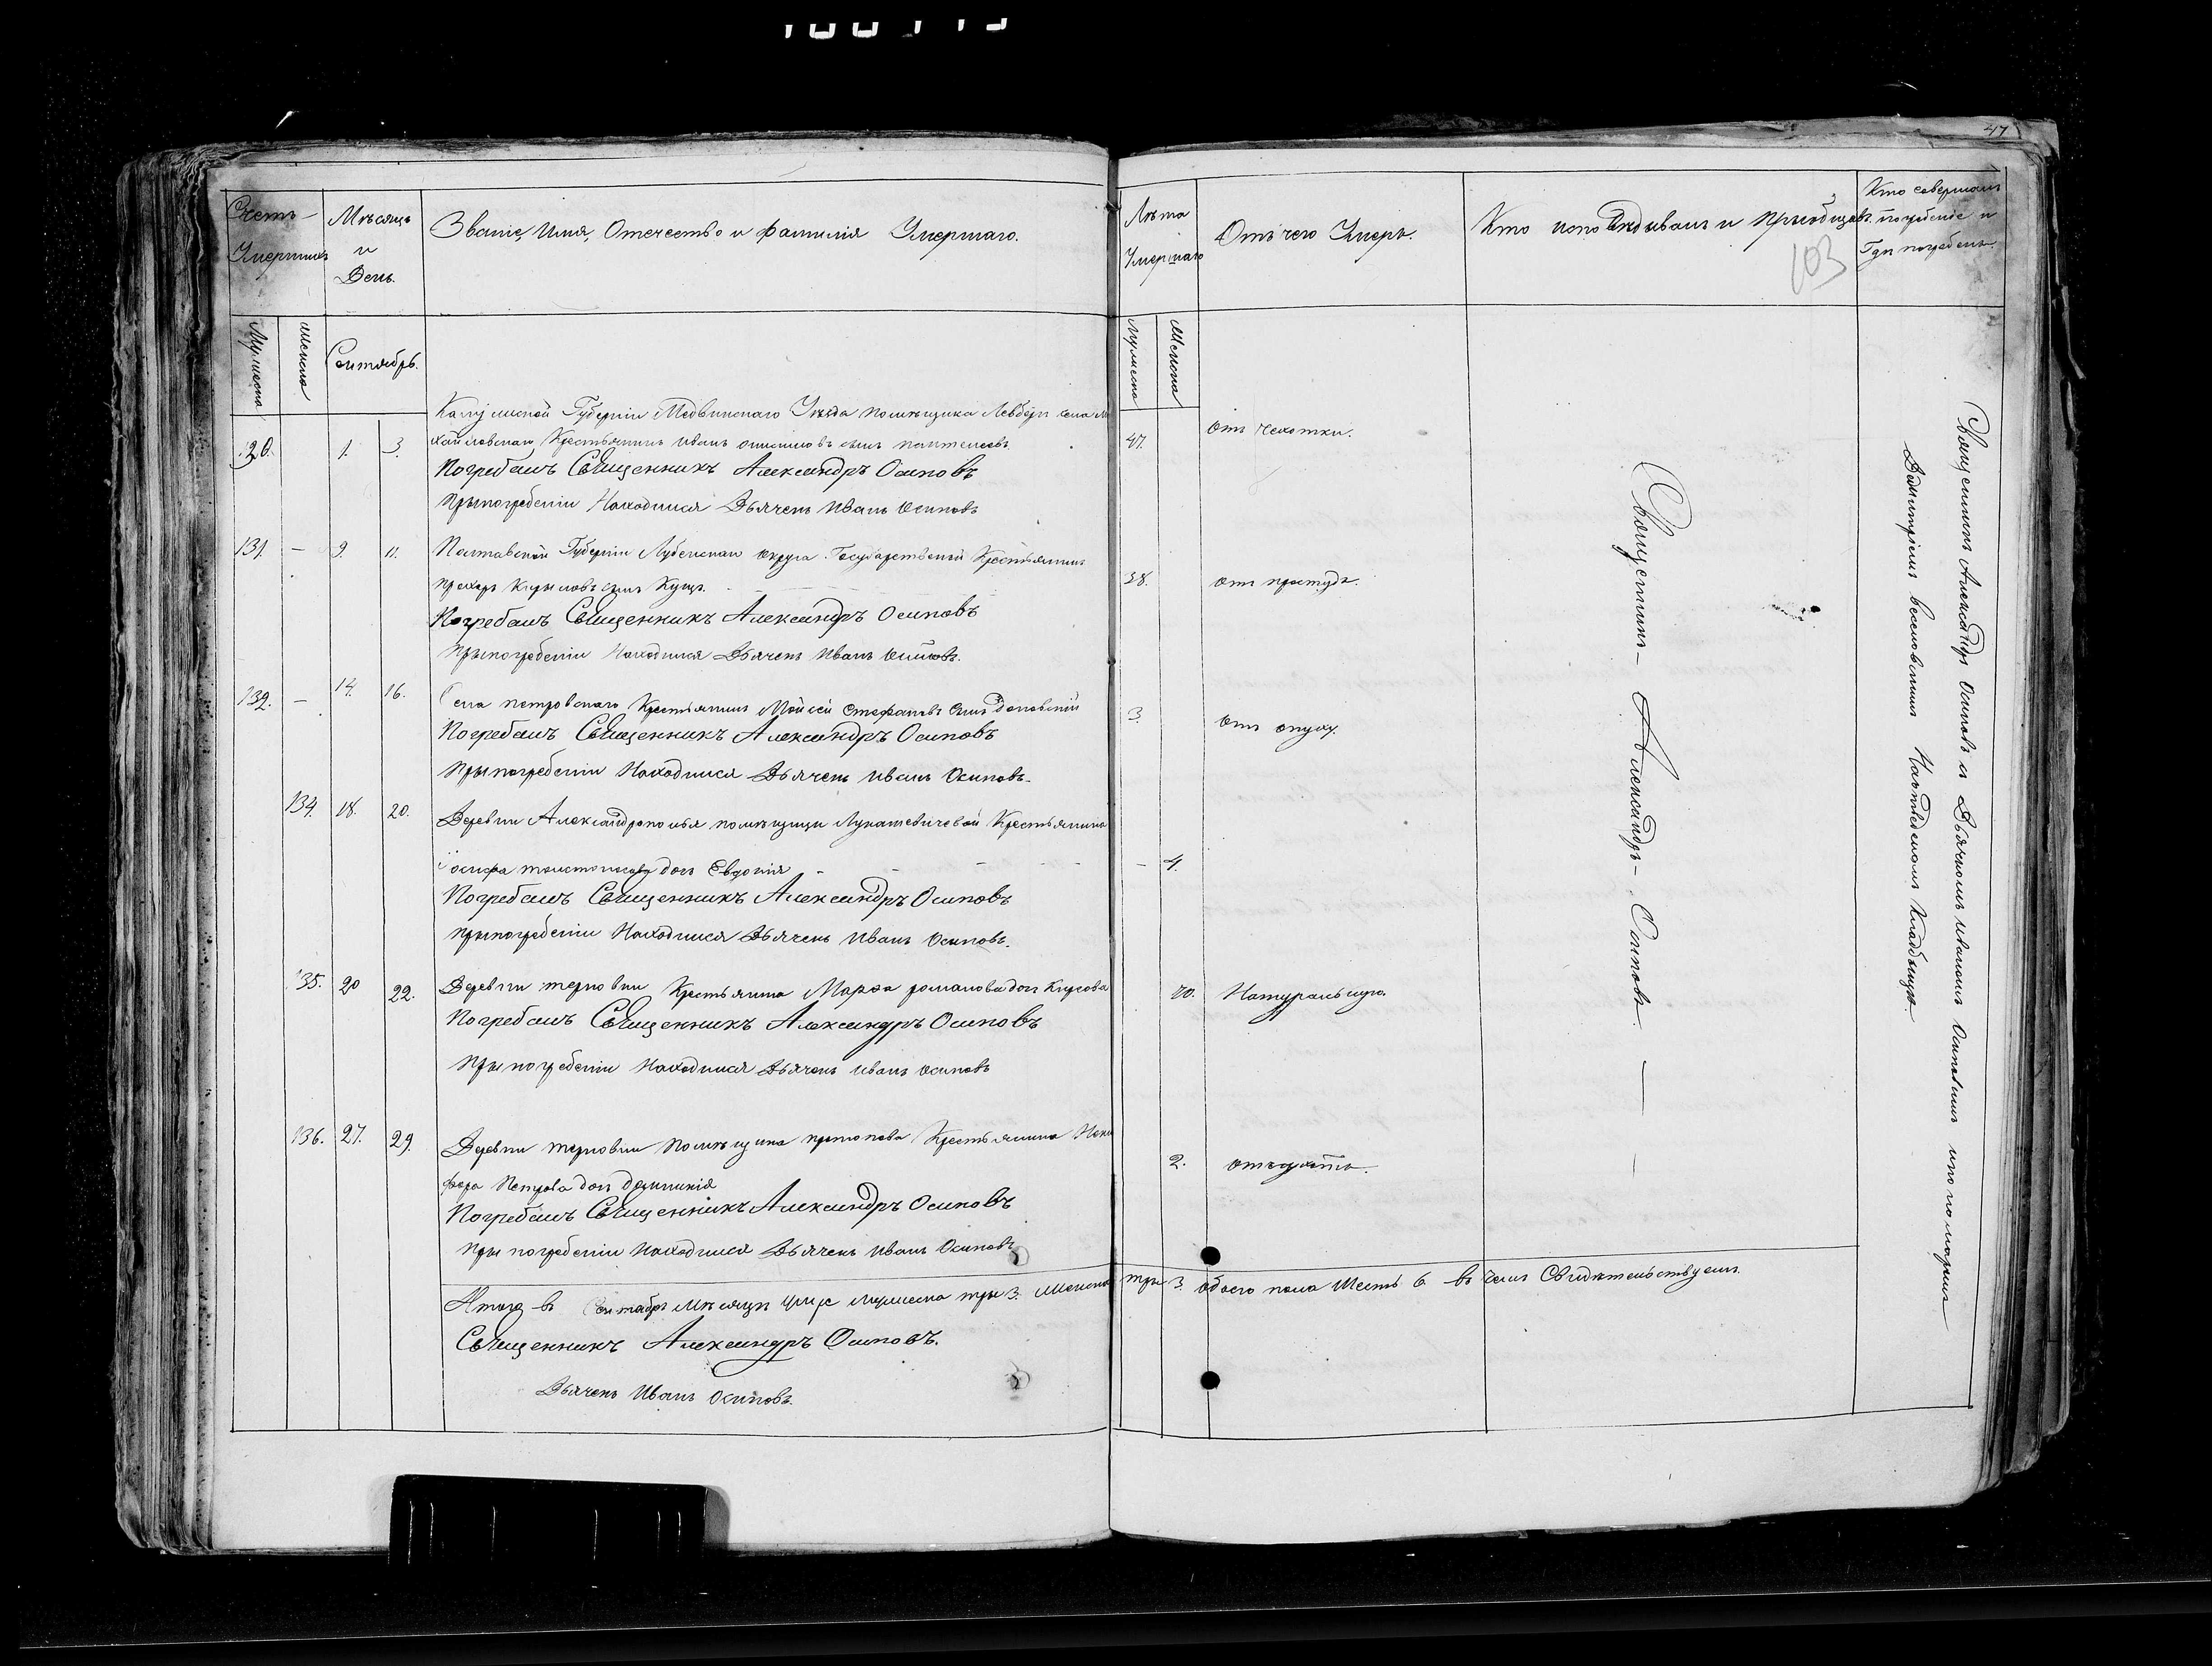 47
Счетъ Умершихъ
Мѣсяцъ и День.
Званіе, Имя, Отечество и Фамилія Умершаго.
Лѣта Умершаго
Отъ чего Умеръ.
Кто исповѣдывалъ и Пріобщалъ.
Кто совершалъ погребеніе и Гдѣ погребенъ.
103
Мужеска
Женска
Сентябрь.
Мужеска
Женска
Губерніи Медынскаго Уѣзда помѣщика села Ми
130. 1. 3. хайловскаго Крестьянинъ Иванъ сынъ 47. Отъ Чехотки.
Погребалъ Священникъ Александръ Осиповъ
При погребеніи Находился Дьячекъ Иванъ Осиповъ
131. — 9. 11. Полтавской Губерніи Лубенскаго Округа Государственый Крестьянинъ
Прохоръ сынъ Куцъ. 38. Отъ простуды.
Погребалъ Священникъ Александръ Осиповъ
При погребеніи Находился Дьячекъ Иванъ Осиповъ.
132. — 14. 16. Села Петровскаго Крестьянинъ Мойсей Стефановъ Сынъ 3. Отъ опуху.
Погребалъ Священникъ Александръ Осиповъ
При погребеніи Находился Дьячекъ Иванъ Осиповъ.
134. 18. 20. Деревни Александрополья помѣщицы Лукашевичевой Крестьянина
Іосифа дочь Евдокія — 4.
Погребалъ Священникъ Александръ Осиповъ
При погребеніи Находился Дьячекъ Иванъ Осиповъ.
135. 20 22. Деревни Терновки Крестьянка Марфа Романова дочь 70. Натурально.
Погребалъ Священникъ Александръ Осиповъ
При погребеніи Находился Дьячекъ Иванъ Осиповъ
136. 27. 29. Деревни Терновки Помѣщика Крестьянина Ники
фора Петрова дочь 2.
Погребалъ Священникъ Александръ Осиповъ
При погребеніи Находился Дьячекъ Иванъ Осиповъ
Итого въ Сентябрѣ Мѣсяцѣ мужеска три 3. Женска три 3. обоего пола Шесть 6 въ чемъ Свидѣтельствуемъ.
Священникъ Александръ Осиповъ.
Дьячекъ Иванъ Осиповъ.
Священникъ — Александръ — Осиповъ.
Священникъ Александръ Осиповъ съ Дьячкомъ Иваномъ Осиповымъ и пономаремъ
Димитріемъ Кладбищѣ.